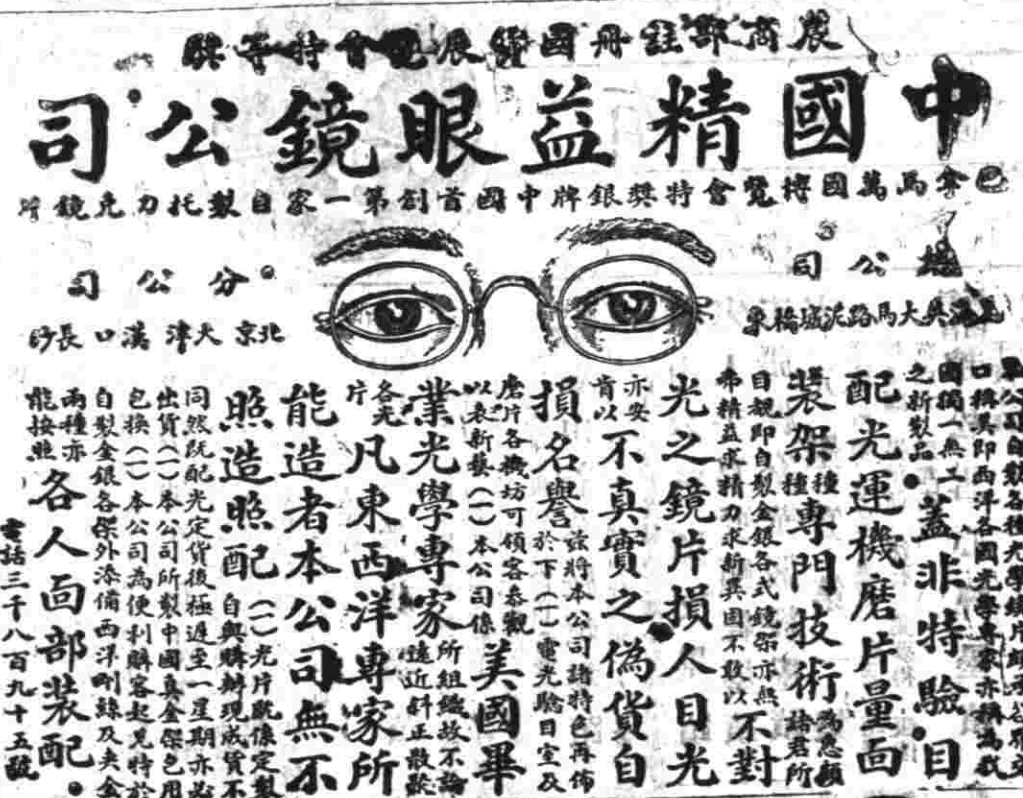 農商部註冊國貨展覽會特等獎
中國精益眼鏡公司
巴拿馬萬國博覽會特獎銀牌中國首創第一家自製托力克鏡片
總公司
上海英大馬路泥城橋東
分公司
北京 天津 漢口 長沙
公司自製各種光學鏡片
口稱異即西洋各國光學專家亦稱為我
國獨一無二
之新製品 蓋非特驗目
配光運機磨片量面
裝架種種專門技術為諸君所
目覩即自製金銀各式鏡架亦無
弗精益求精力求新異固不敢以不對
光之鏡片損人目光
亦妄肯以不真實之偽貨自
損名譽茲將本公司諸特色再佈
於下(一)電光驗目室及
磨片各機坊可領客參觀
以表新藝(一)本公司係美國畢
業光學專家所組織故不論
遠近斜正散
各光片凡東西洋專家所
能造者本公司無不
照造照配(一)光片既係定製
自與購辦現成貨不
同然既配光定貨後極遲至一星期亦必
出貨(一)本公司所製中國真金架包用
包換(一)本公司為便利購客起見特於
自製金銀各架外添備西洋剛絲及夾金
兩種亦能按照各人面部裝配
電話三千八百九十五號